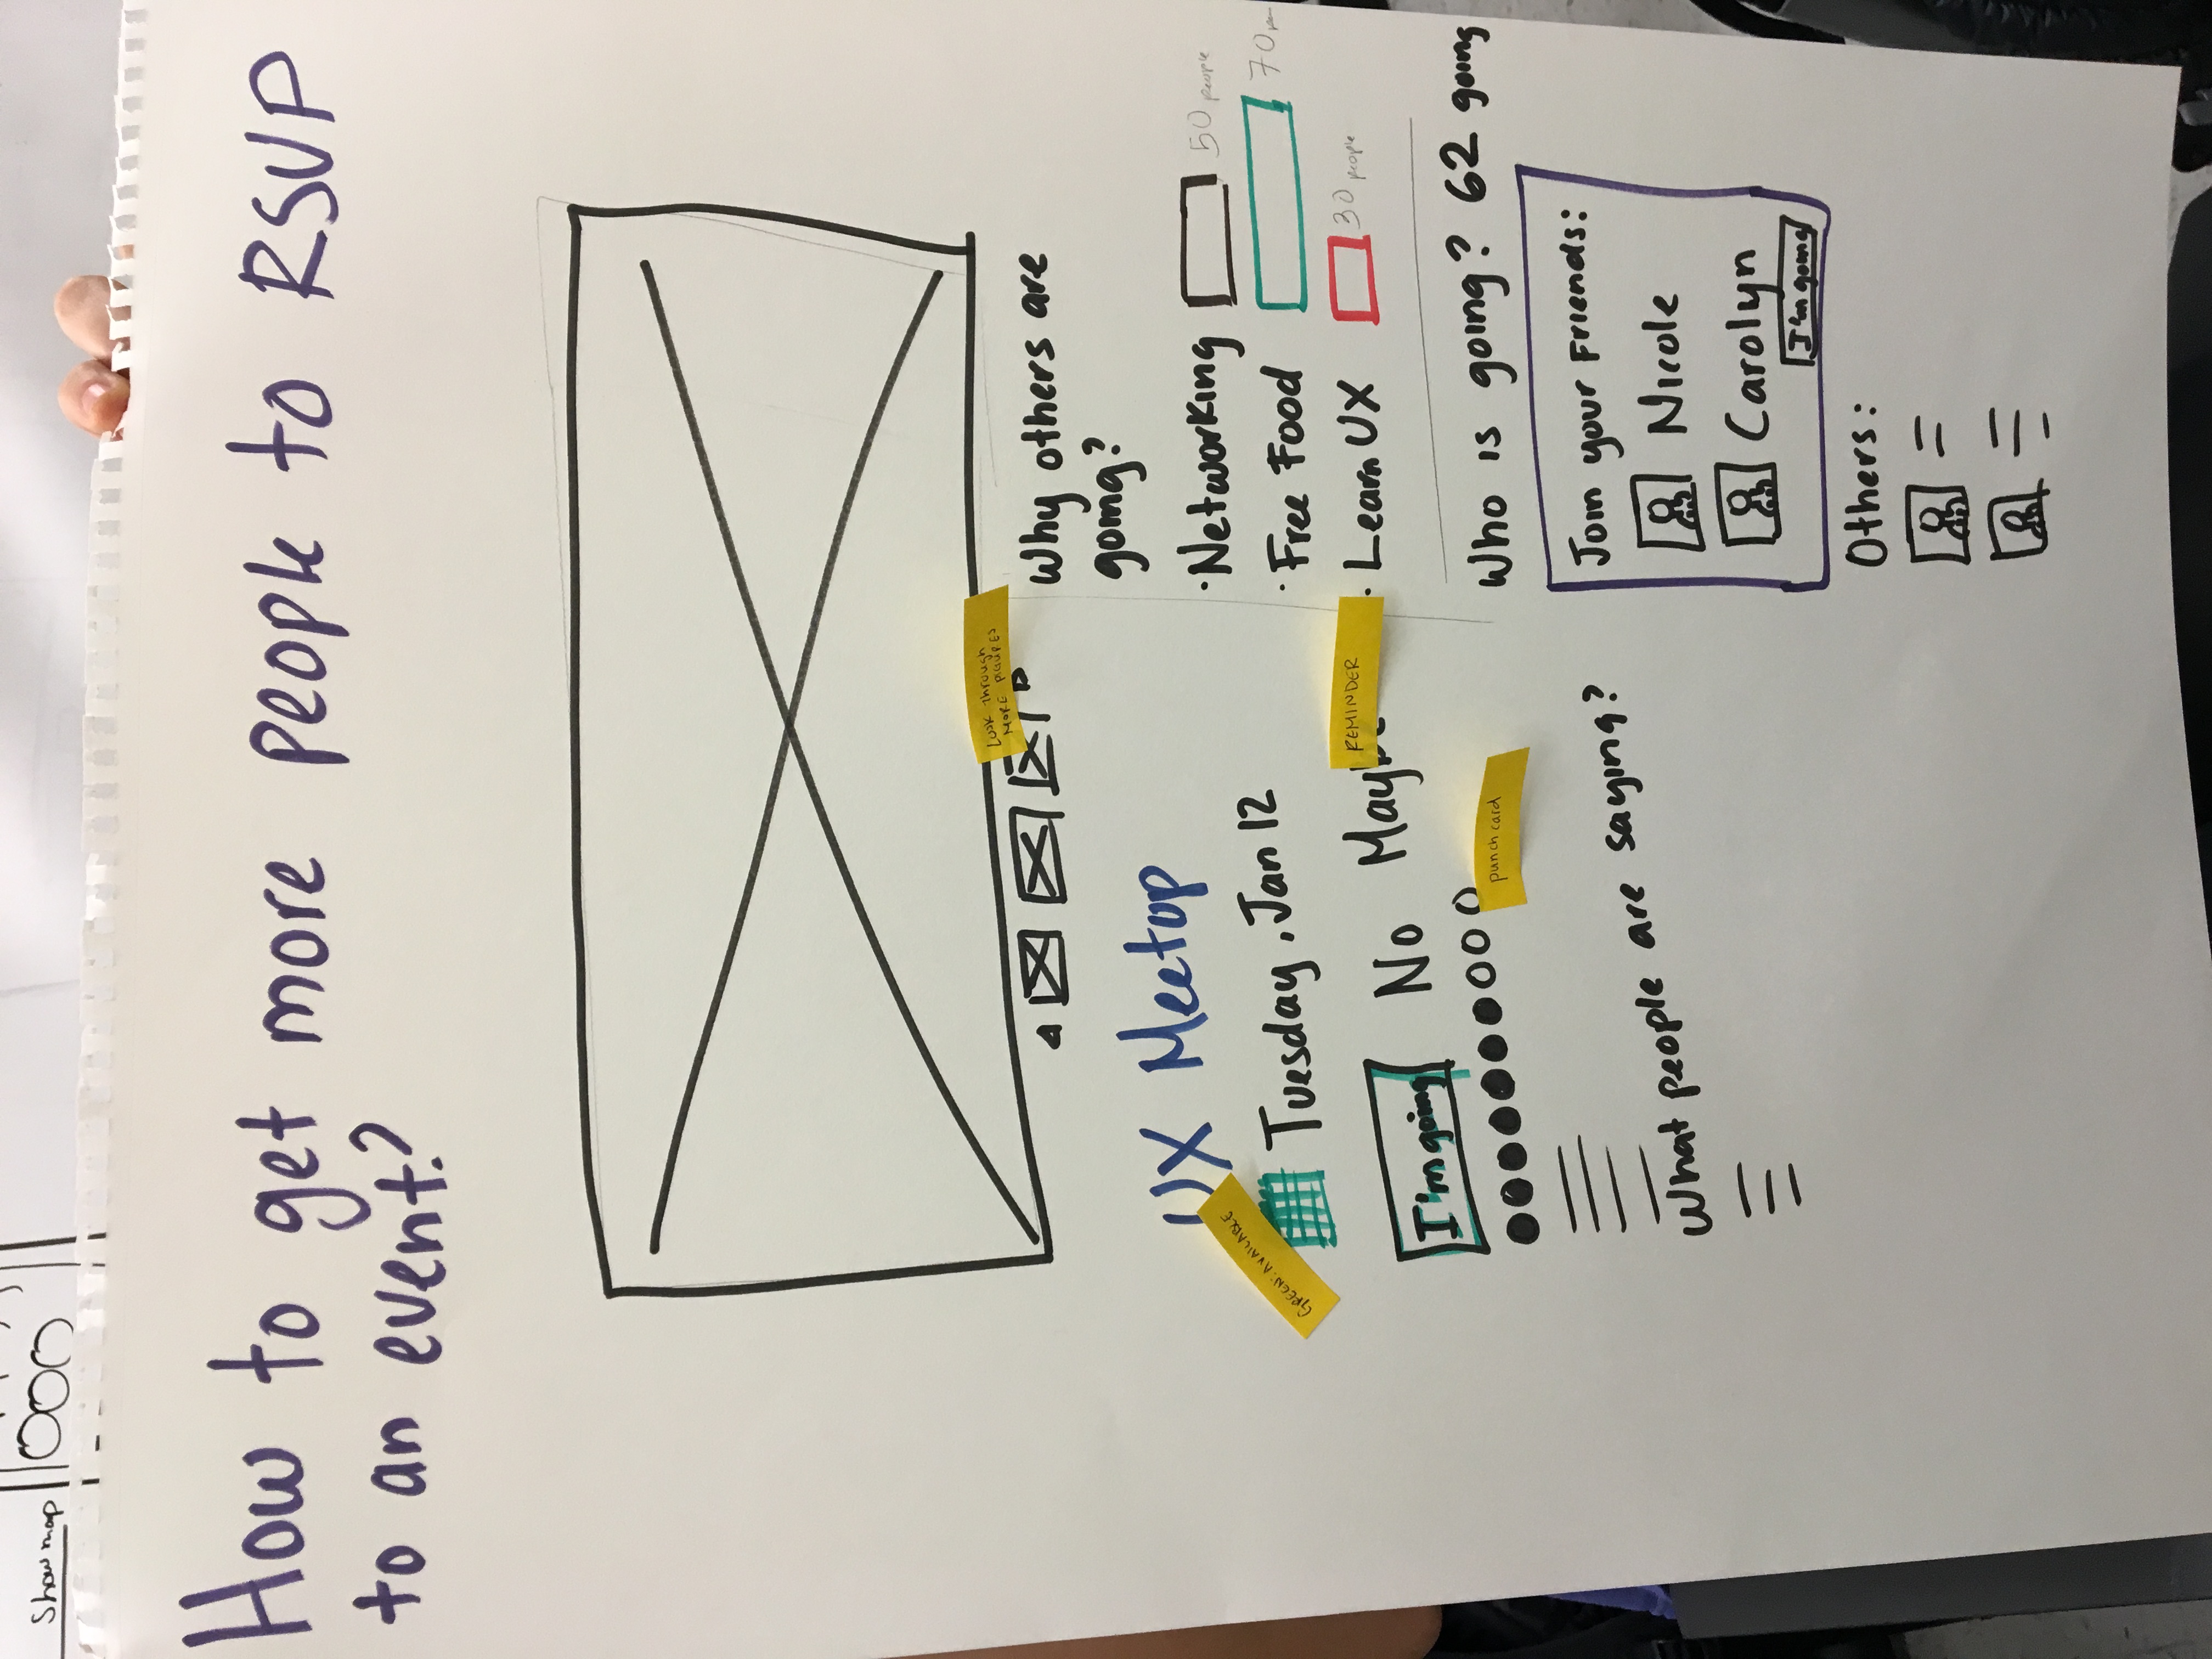 Show map
How to get more people to RSVP
to an event?
Look through
MORE PICTURES
UX Meetup
GREEN: AVAILABLE
Tuesday, Jan 12
I'm going No Maybe
REMINDER
punch card
What people are saying?
Why others are
going?
· Networking 50 people
· Free Food 70
· Learn UX 30 people
Who is going? 62 going
Join your Friends:
Nicole
Carolyn
I'm going
Others: